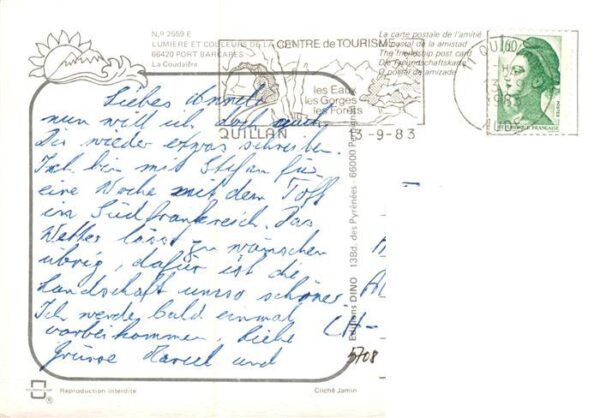 N.º 2659 E
LUMIERE ET COULEURS DE LA
66420 PORT BARCARES
La Coudalère
CENTRE de TOURISME
les Eaux
les Gorges
les Forêts
QUILLAN 13-9-83
La carte postale de l'amitié
La postal de la amistad
The friendship post card
Die Freundschaftskarte
O postal de amizade
11 QUI
1,60
POSTES
FRANÇAISE
Liebes
nun will ich doch auch
Dir wieder etwas schreiben.
Ich bin mit Stefan für
eine Woche mit dem Töff
in Südfrankreich. Das
Wetter lässt zu wünschen
übrig, dafür ist die
Landschaft umso schöner.
Ich werde bald einmal
vorbeikommen, liebe
Grüsse Marcel und
CH-
5708
Editions DINO 13Bd. des Pyrénées 66000
Reproduction interdite
Cliché Jamin